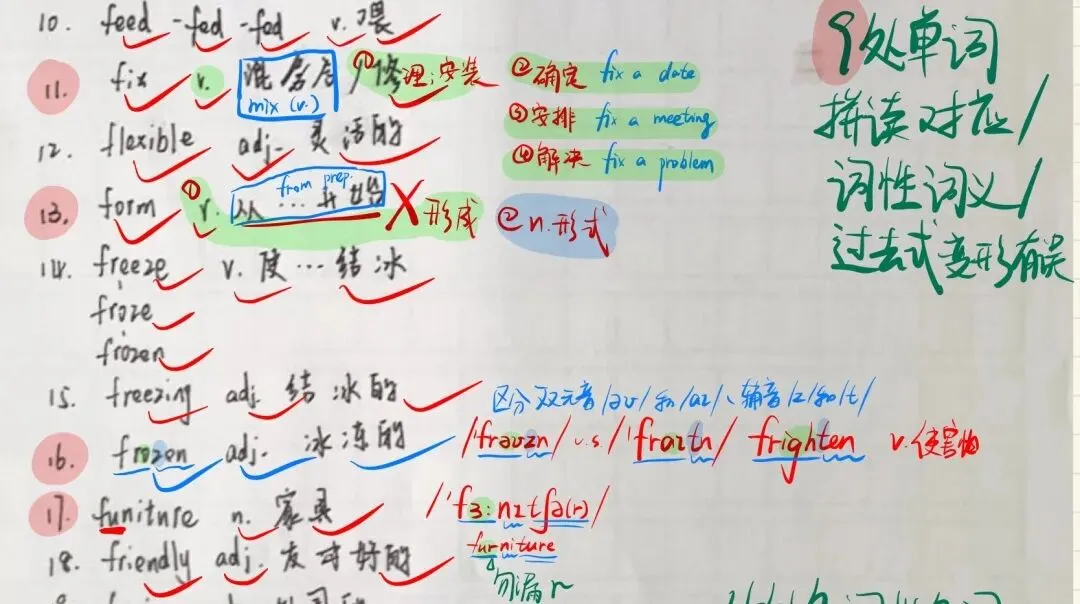 10. feed - fed - fed v. 喂
11. fix v. 混合后 / ①修理;安装 ②确定 fix a date
mix (v.)
③安排 fix a meeting
12. flexible adj. 灵活的 ④解决 fix a problem
from prep.
13. form ① v. 从 … 形成 ② n. 形式
14. freeze v. 使…结冰
froze
frozen
15. freezing adj. 结冰的
区分双元音/əʊ/和/aɪ/、辅音/z/和/t/
16. frozen adj. 冰冻的 /ˈfrəʊzn/ v.s /ˈfraɪtn/ frighten v. 使害怕
17. funiture n. 家具 /ˈfɜːnɪtʃə(r)/
furniture
18. friendly adj. 友好的
勿漏r
9处单词
拼读对应/
词性词义/
过去式变形有误